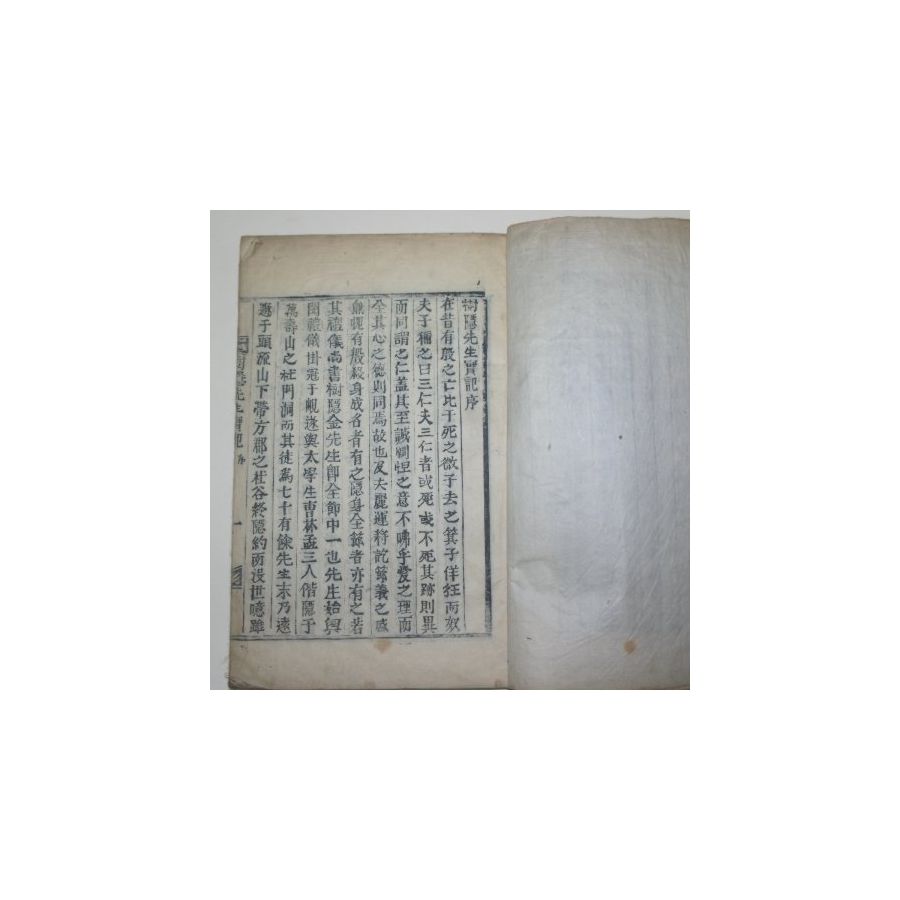 樹隱先生實記序
在昔有殷之亡比干死之微子去之箕子佯狂而奴
夫子稱之曰三仁夫三仁者或死或不死其跡則異
而同謂之仁盖其至誠惻怛之意不咈乎愛之理而
全其心之德則同焉故也及夫麗運將訖節義之盛
無愧有殷殺身成名者有之隱身全節者亦有之若
其禮儀尙書樹隱金先生卽全節中一也先生始與
閔禮儀掛冠于峴遂與太學生曺林孟三人偕隱于
萬壽山之杜門洞而其徒爲七十有餘先生末乃遠
遯于頭流山下帶方郡之杜谷終隱約而沒世噫雖
樹隱先生實記 序 一